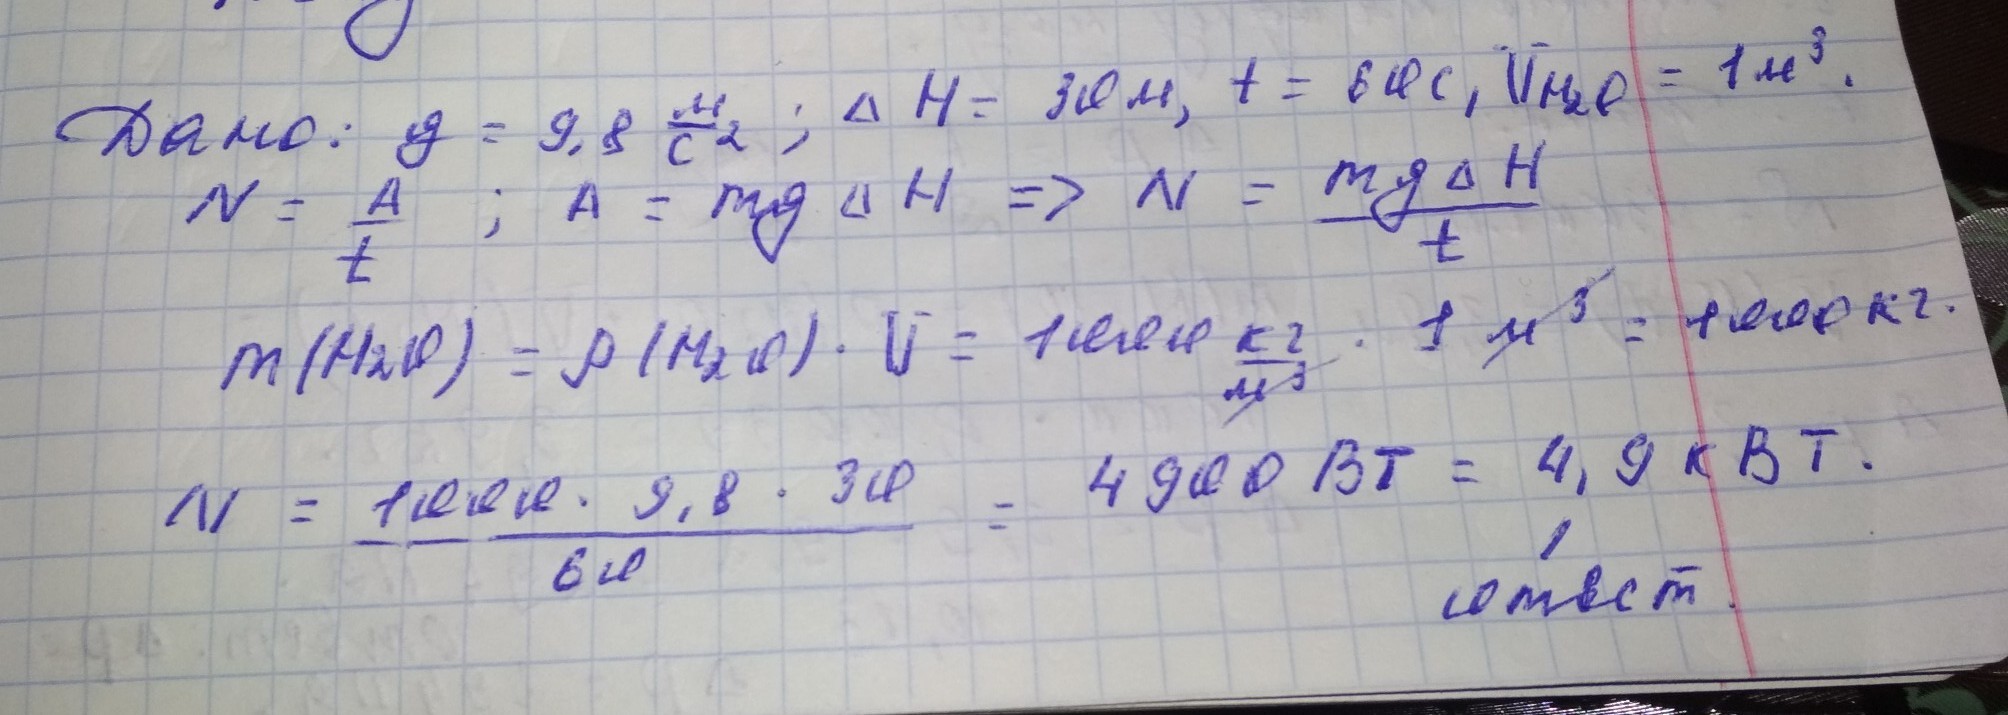 Дано: g = 9,8 м/с²; ΔH = 30м, t = 60с, V H₂O = 1м³.
N = A/t ; A = mgΔH => N = mgΔH/t
m(H₂O) = ρ(H₂O) · V = 1000 кг/м³ · 1 м³ = 1000кг.
N = 1000 · 9,8 · 30/60 = 4900 Вт = 4,9 кВт.
ответ.